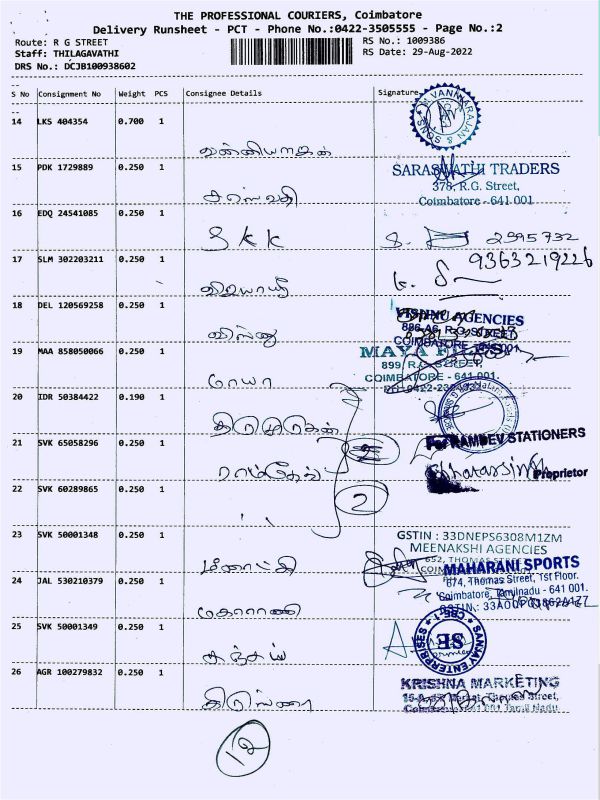 THE PROFESSIONAL COURIERS, Coimbatore
Delivery Runsheet - PCT - Phone No.:0422-3505555 - Page No.:2
Route: R G STREET
RS No.: 1009386
Staff: THILAGAVATHI
RS Date: 29-Aug-2022
DRS No.: DCJB100938602
S No Consignment No Weight PCS Consignee Details Signature
14 LKS 404354 0.700 1
VANNIYARAJAN & SONS
15 PDK 1729889 0.250 1
SARASWATHI TRADERS
378, R.G. Street,
Coimbatore - 641 001
16 EDQ 24541085 0.250 1 SKK
2395732
17 SLM 302203211 0.250 1
9363219226
18 DEL 120569258 0.250 1 விஸ்ணு
VISHNU AGENCIES
886-A6, R.G. STREET,
COIMBATORE
19 MAA 858050066 0.250 1 மாயா
MAYA
899, R.G. STREET,
COIMBATORE - 641 001.
20 IDR 50384422 0.190 1 திருமுருகன்
21 SVK 65058296 0.250 1 ராம்தேவ்
For RAMDEV STATIONERS
Proprietor
22 SVK 60289865 0.250 1 ''
2
23 SVK 50001348 0.250 1 மீனாட்சி
GSTIN : 33DNEPS6308M1ZM
MEENAKSHI AGENCIES
652, THOMAS STREET
24 JAL 530210379 0.250 1 மகாராணி
MAHARANI SPORTS
674, Thomas Street, 1st Floor.
Coimbatore, Tamilnadu - 641 001.
25 SVK 50001349 0.250 1 சஞ்சய்
SANJAY ENTERPRISES
CBE-1
SE
26 AGR 100279832 0.250 1
KRISHNA MARKETING